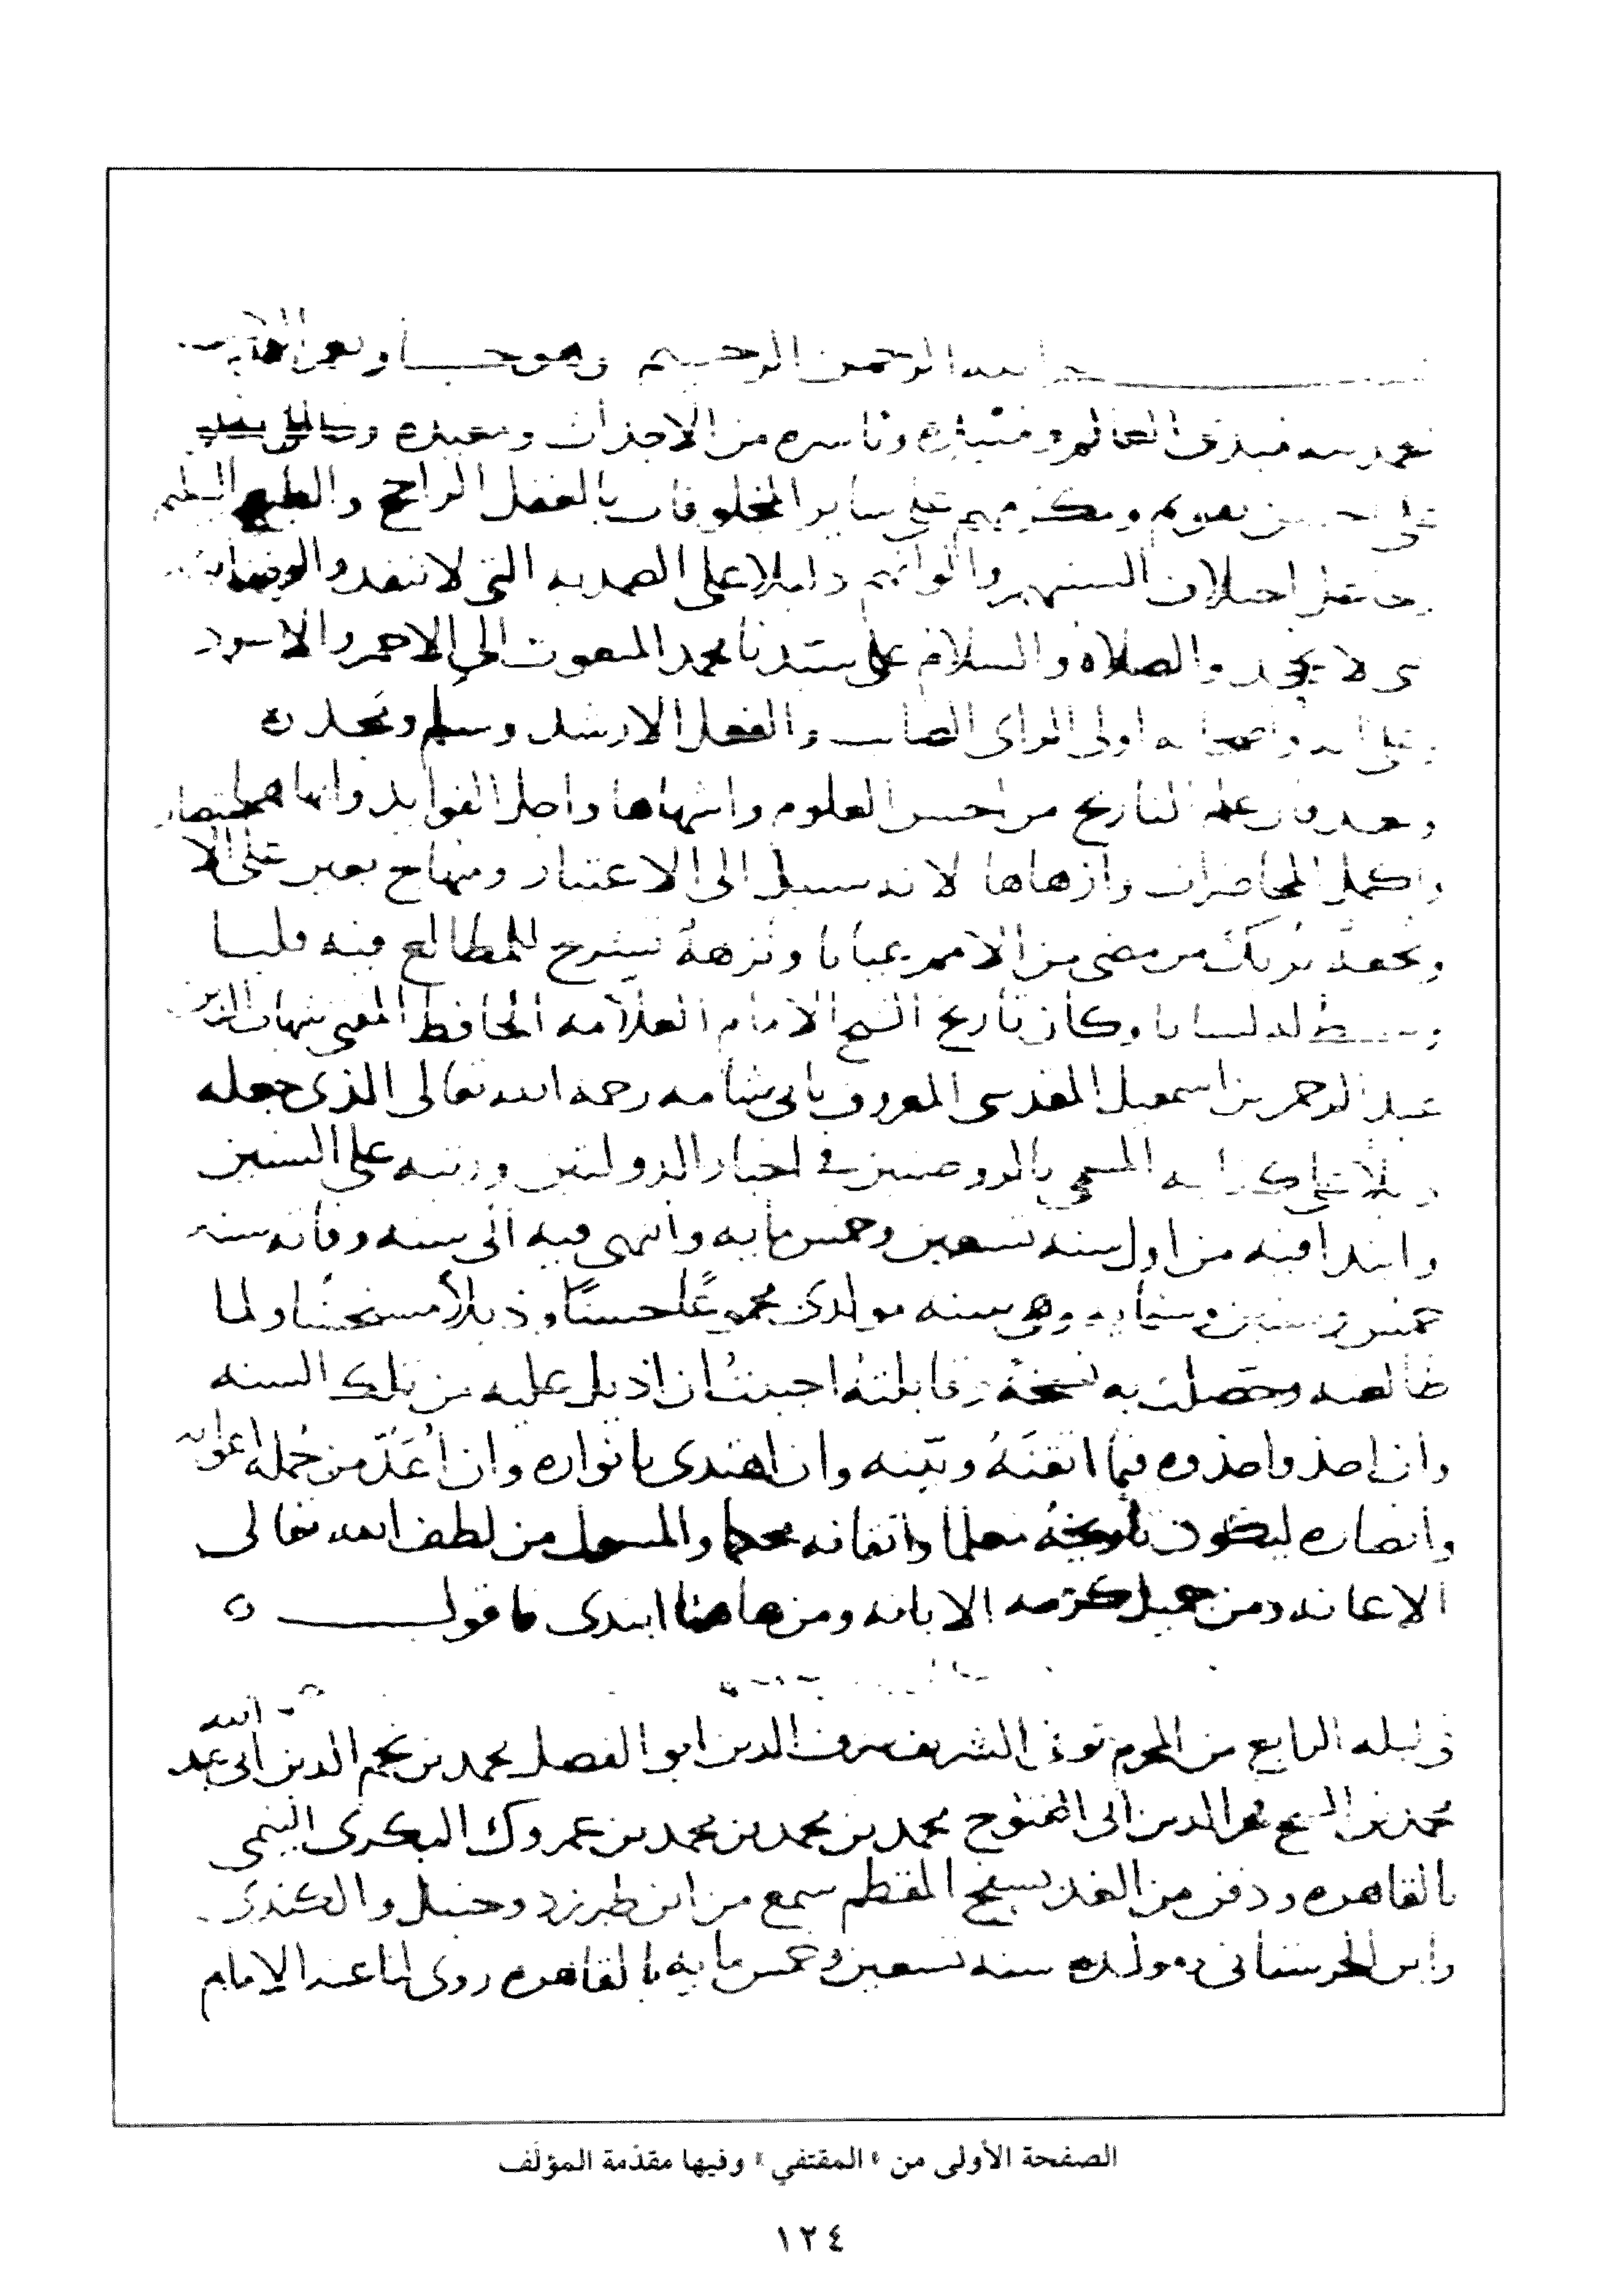 الله الرحمن الرحيم وهو حسبنا ونعم
نحمد الله مبدئ العالم و وناشره من الاجداث ومعيده
على احسن تقويم ومكرمهم على ساير المخلوقات بالعقل الراجح والطبع السليم
اختلاف السنتهم والوانهم دليلا على الصمديه التي لا تنفد
لا تجحد والصلاه والسلام على سيدنا محمد المبعوث الى الاحمر والاسود
وعلى اله واصحابه اولى الراى الصايب والفعل الارشد وسلم
وبعد فان علم التاريخ من احسن العلوم واشهاها واجل الفوايد وانهاها
واكمل المحاضرات وازهاها لانه سبيل الى الاعتبار ومنهاج على الا ختصار
وتحفة تريك من مضى من الامم عيانا ونزهة تشرح للمطالع فيه قلبا
وتبسط له لسانا وكان تاريخ الشيخ الامام العلامه الحافظ المفتى شهاب الدين
عبد الرحمن بن اسمعيل المقدسي المعروف بابى شامه رحمه الله تعالى الذى جعله
ذيلا على كتابه المسمى بالروضتين في اخبار الدولتين ورتبه على السنين
وابتدا فيه من اول سنه تسعين وخمس مايه وانتهى فيه الى سنه وفاته سنه
خمس وستين وستمايه وهى سنه مولدى مجموعًا حسنًا وذيلاً مستحسنا ولما
طالعته وحصلت به نسخة وقابلته احببت ان اذيل عليه من تلك السنه
وان احذو احذوه فيما اتقنَهُ وبيّنه وان اهتدى بانواره وان اُعَدّ من جُمله اعوانه
وانصاره ليكون تاريخه معلما واتقانه محكما والمسول من لطف الله تعالى
الاعانه ومن جميل كرمه الابانه ومن هاهنا ابتدى فاقول
فى ليله الرابع من المحرم توفى الشريف شرف الدين ابو الفضل محمد بن نجم الدين ابى عبد الله
محمد بن الشيخ فخر الدين ابى الفتوح محمد بن محمد بن محمد بن عمروك البكرى التيمى
بالقاهره ودفن من الغد بسفح المقطم سمع من ابن طبرزد وحنبل والكندى
وابن الحرستانى ومولده سنه تسعين وخمس مايه بالقاهره روى لنا عنه الامام
الصفحة الأولى من «المقتفي» وفيها مقدّمة المؤلّف
١٢٤